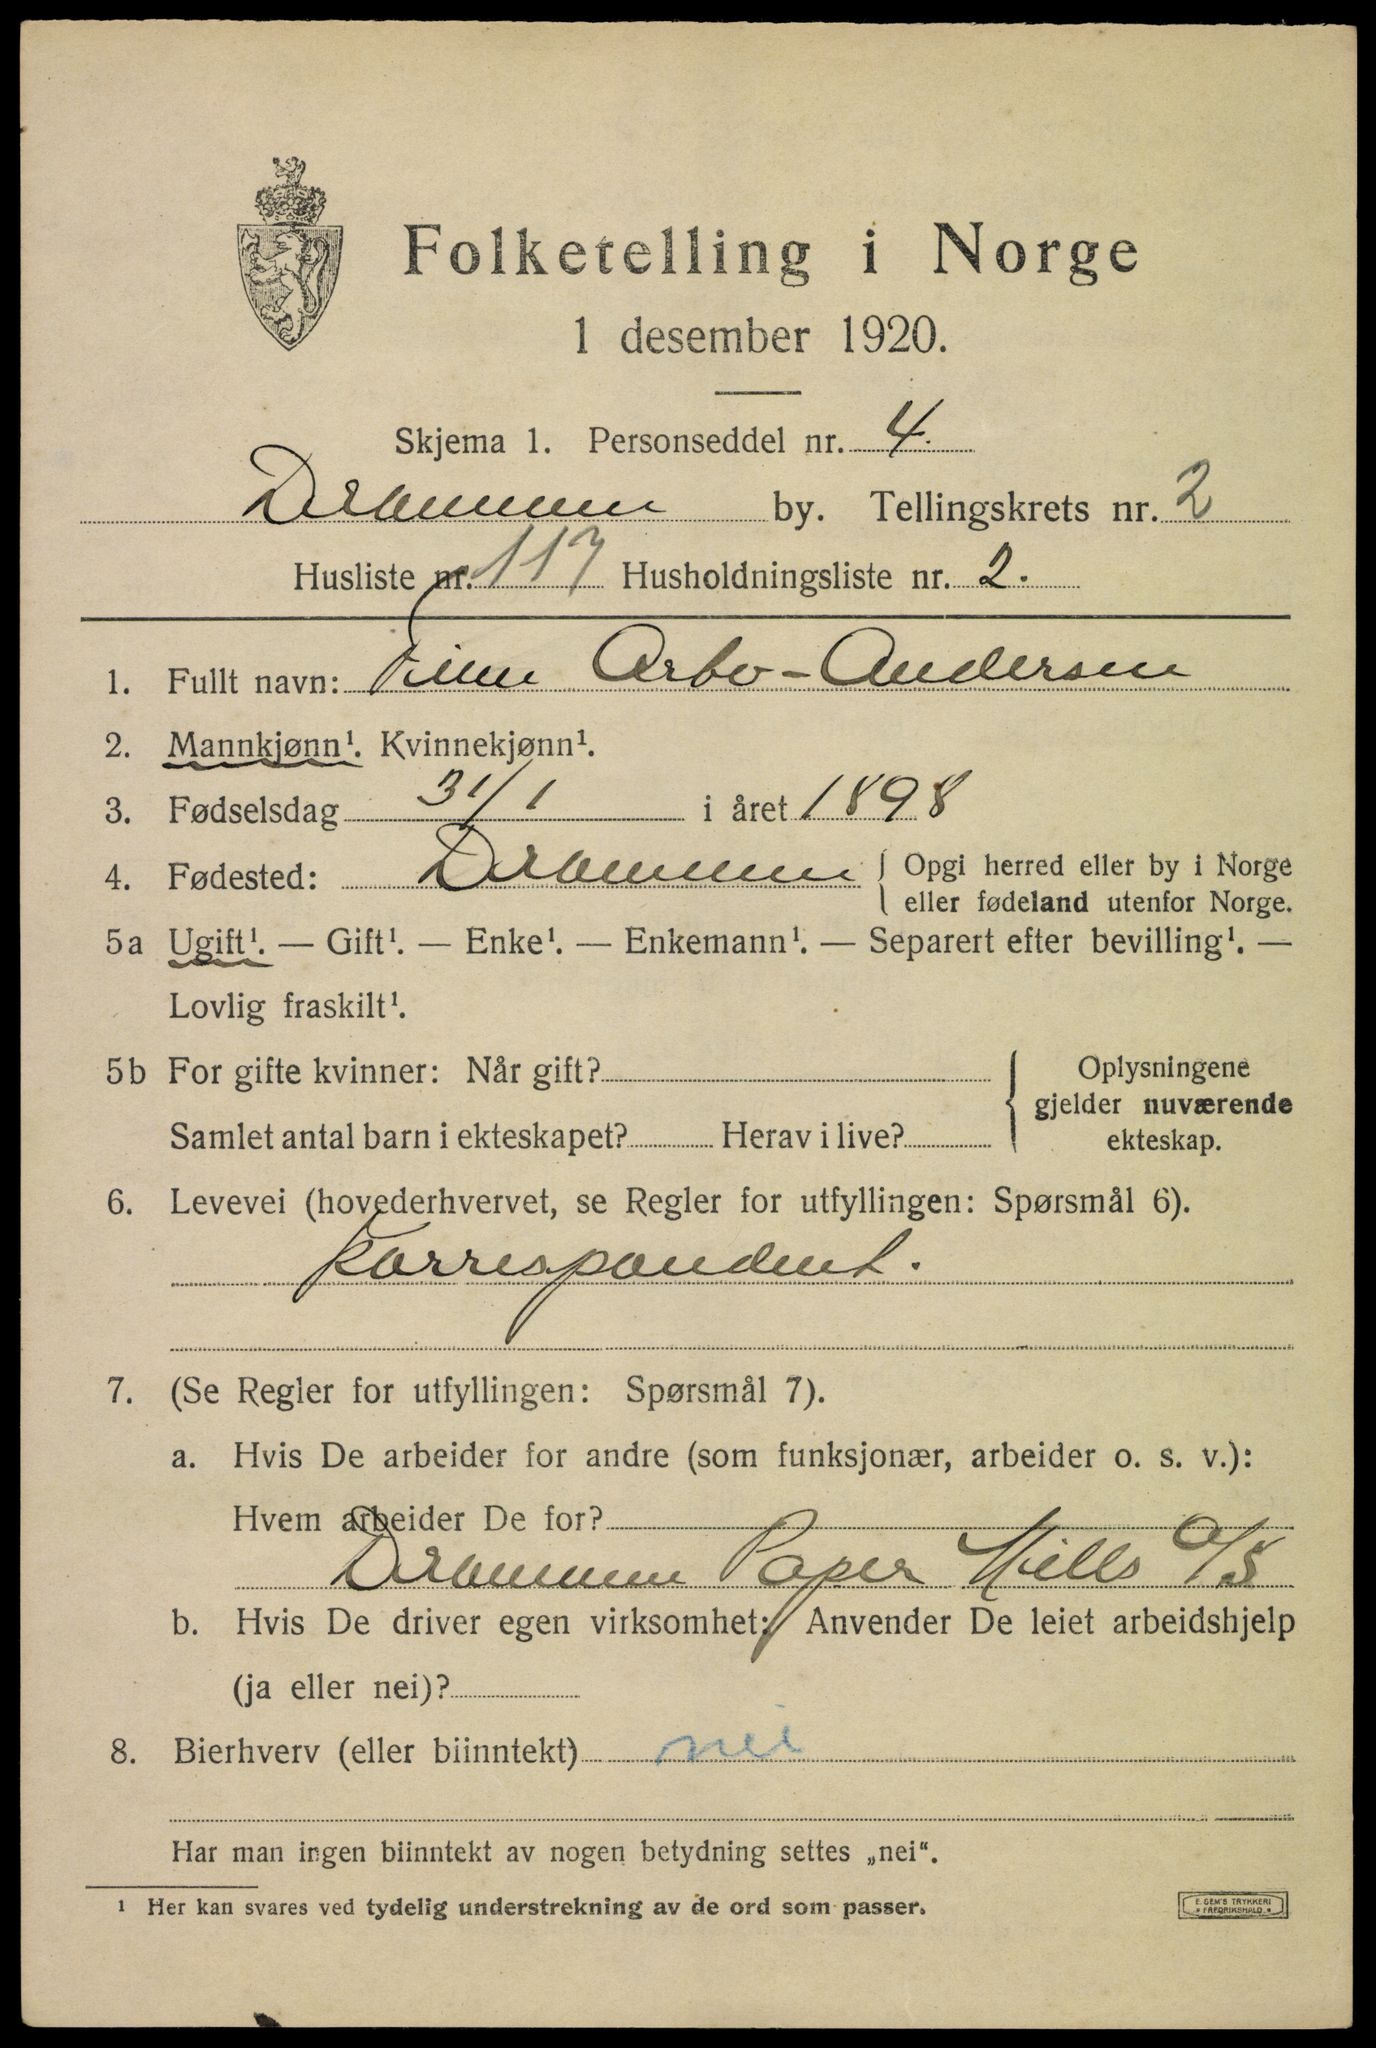 Folketelling i Norge
1 desember 1920.
Skjema 1. Personseddel nr. 4.
Drammen by. Tellingskrets nr. 2
Husliste nr. 117 Husholdningsliste nr. 2.
1. Fullt navn: Finn Arbo-Andersen
2. Mannkjønn¹. Kvinnekjønn¹.
3. Fødselsdag 31/1 i året 1898
4. Fødested: Drammen { Opgi herred eller by i Norge
eller fødeland utenfor Norge.
5a Ugift¹. — Gift¹. — Enke¹. — Enkemann¹. — Separert efter bevilling¹. —
Lovlig fraskilt¹.
5b For gifte kvinner: Når gift? { Oplysningene
gjelder nuværende
Samlet antal barn i ekteskapet? Herav i live? ekteskap.
6. Levevei (hovederhvervet, se Regler for utfyllingen: Spørsmål 6).
Korrespondent.
7. (Se Regler for utfyllingen: Spørsmål 7).
a. Hvis De arbeider for andre (som funksjonær, arbeider o. s. v.):
Hvem arbeider De for?
Drammen Paper Mills A/S
b. Hvis De driver egen virksomhet: Anvender De leiet arbeidshjelp
(ja eller nei)?
8. Bierhverv (eller biinntekt) nei
Har man ingen biinntekt av nogen betydning settes „nei“.
¹ Her kan svares ved tydelig understrekning av de ord som passer.
E. SEM'S TRYKKERI
* FREDRIKSHALD *